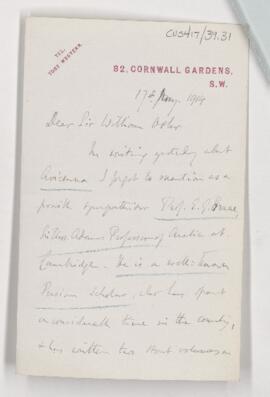 CUS417/39.31
TEL.
WESTERN.
82, CORNWALL GARDENS,
S.W.
17th May. 1914
Dear Sir William Osler
In writing yesterday about
Avicenna I forgot to mention as a
possible sympathiser Prof. E. G. Browne,
Sir Thos. Adams Professor of Arabic at
Cambridge. He is a well-known
Persian Scholar, who has spent
a considerable time in the country,
& has written two stout volumes on